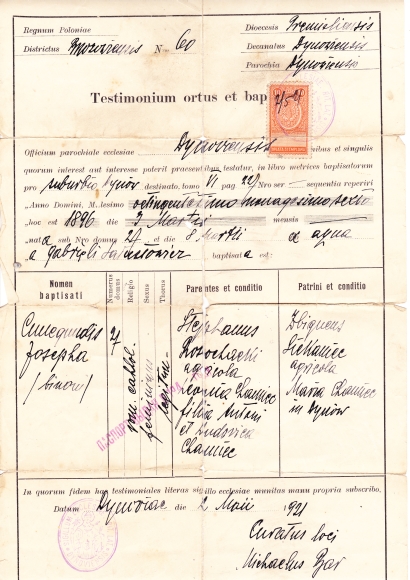 Regnum Poloniae
Districtus Brzozoviensis N 60
Dioecesis Premisliensis
Decanatus Dynoviensis
Parochia Dynoviensis
Testimonium ortus et bap
Officium parochiale ecclesiae Dynoviensis nibus et singulis
quorum interest aut interesse poterit praesentibus testatur, in libro metrices baptisatorum
pro suburbio Dynów destinato, tomo VI pag 229 Nro ser — sequentia reperiri
Anno Domini, Millesimo octingentesimo nonagesimo sexto
hoc est 1896 die 3 Martii mensis
nata sub Nro domus 27 et die 8 Martii a ex aqua
a Gabrieli baptisata est:
Nomen baptisati
Numerus domus
Religio
Sexus
Thorus
Parentes et conditio
Patrini et conditio
Cunegundis
Josepha
27
rom cathol.
femininum
legitim.
Stephanus
agricola
Leonia Chamiec
filia Antoni
et Ludovica
Chamiec
Zbigneus
agricola
Maria Chamiec
in Dynów
In quorum fidem has testimoniales literas sigillo ecclesiae munitas manu propria subscribo.
Datum Dynoviae die 2 Maii 1921
Curatus loci
Michaelus